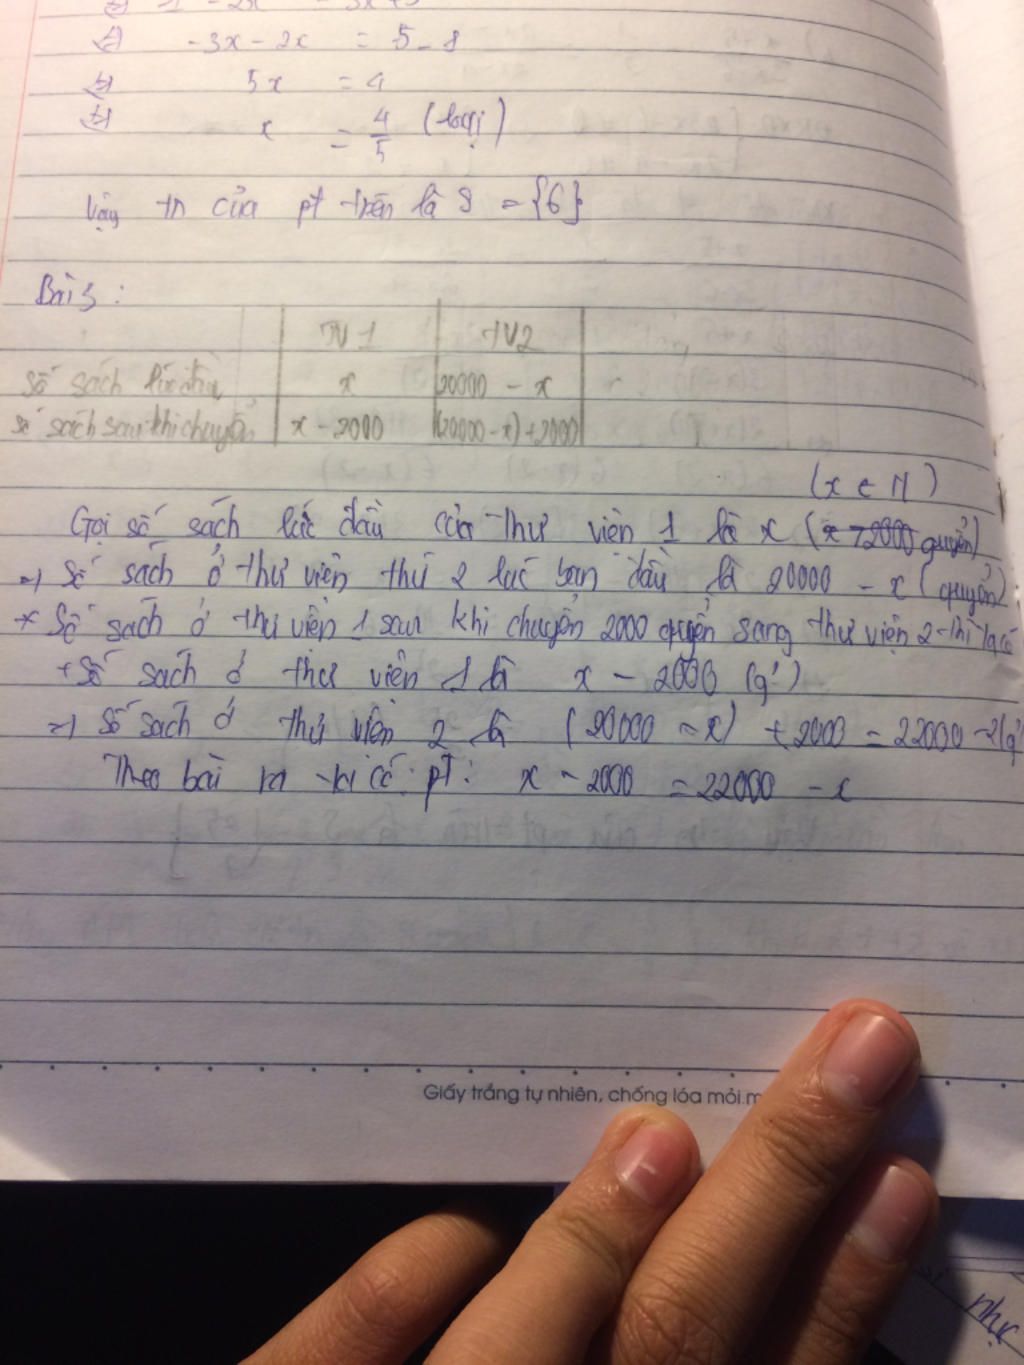 -3x - 2x = 5 - 8
5x = 4
x = 4/5 (loại)
Vậy tn của pt trên là S = {6}
Bài 3:
TV1 TV2
Số sách lúc đầu x 20000 - x
Số sách sau khi chuyển x - 2000 (20000 - x) + 2000
(x ∈ N)
Gọi số sách lúc đầu của thư viện 1 là x (x > 2000 quyển)
=> Số sách ở thư viện thứ 2 lúc ban đầu là 20000 - x (quyển)
* Số sách ở thư viện 1 sau khi chuyển 2000 quyển sang thư viện 2 thì ta có
+ Số sách ở thư viện 1 là x - 2000 (q')
=> Số sách ở thư viện 2 là (20000 - x) + 2000 = 22000 - x (q'
Theo bài ra ta có pt: x - 2000 = 22000 - x
Giấy trắng tự nhiên, chống lóa mỏi m